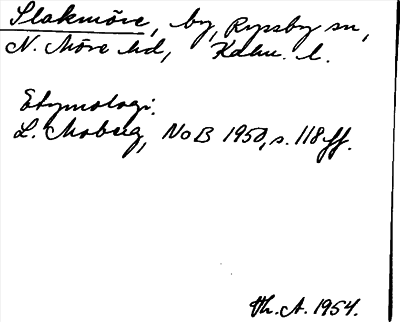 Slakmöre, by, Ryssby sn,
N. Möre hd, Kalm. l.
Etymologi:
L. Moberg, NoB 1950, s. 118 ff.
Th. A. 1954.